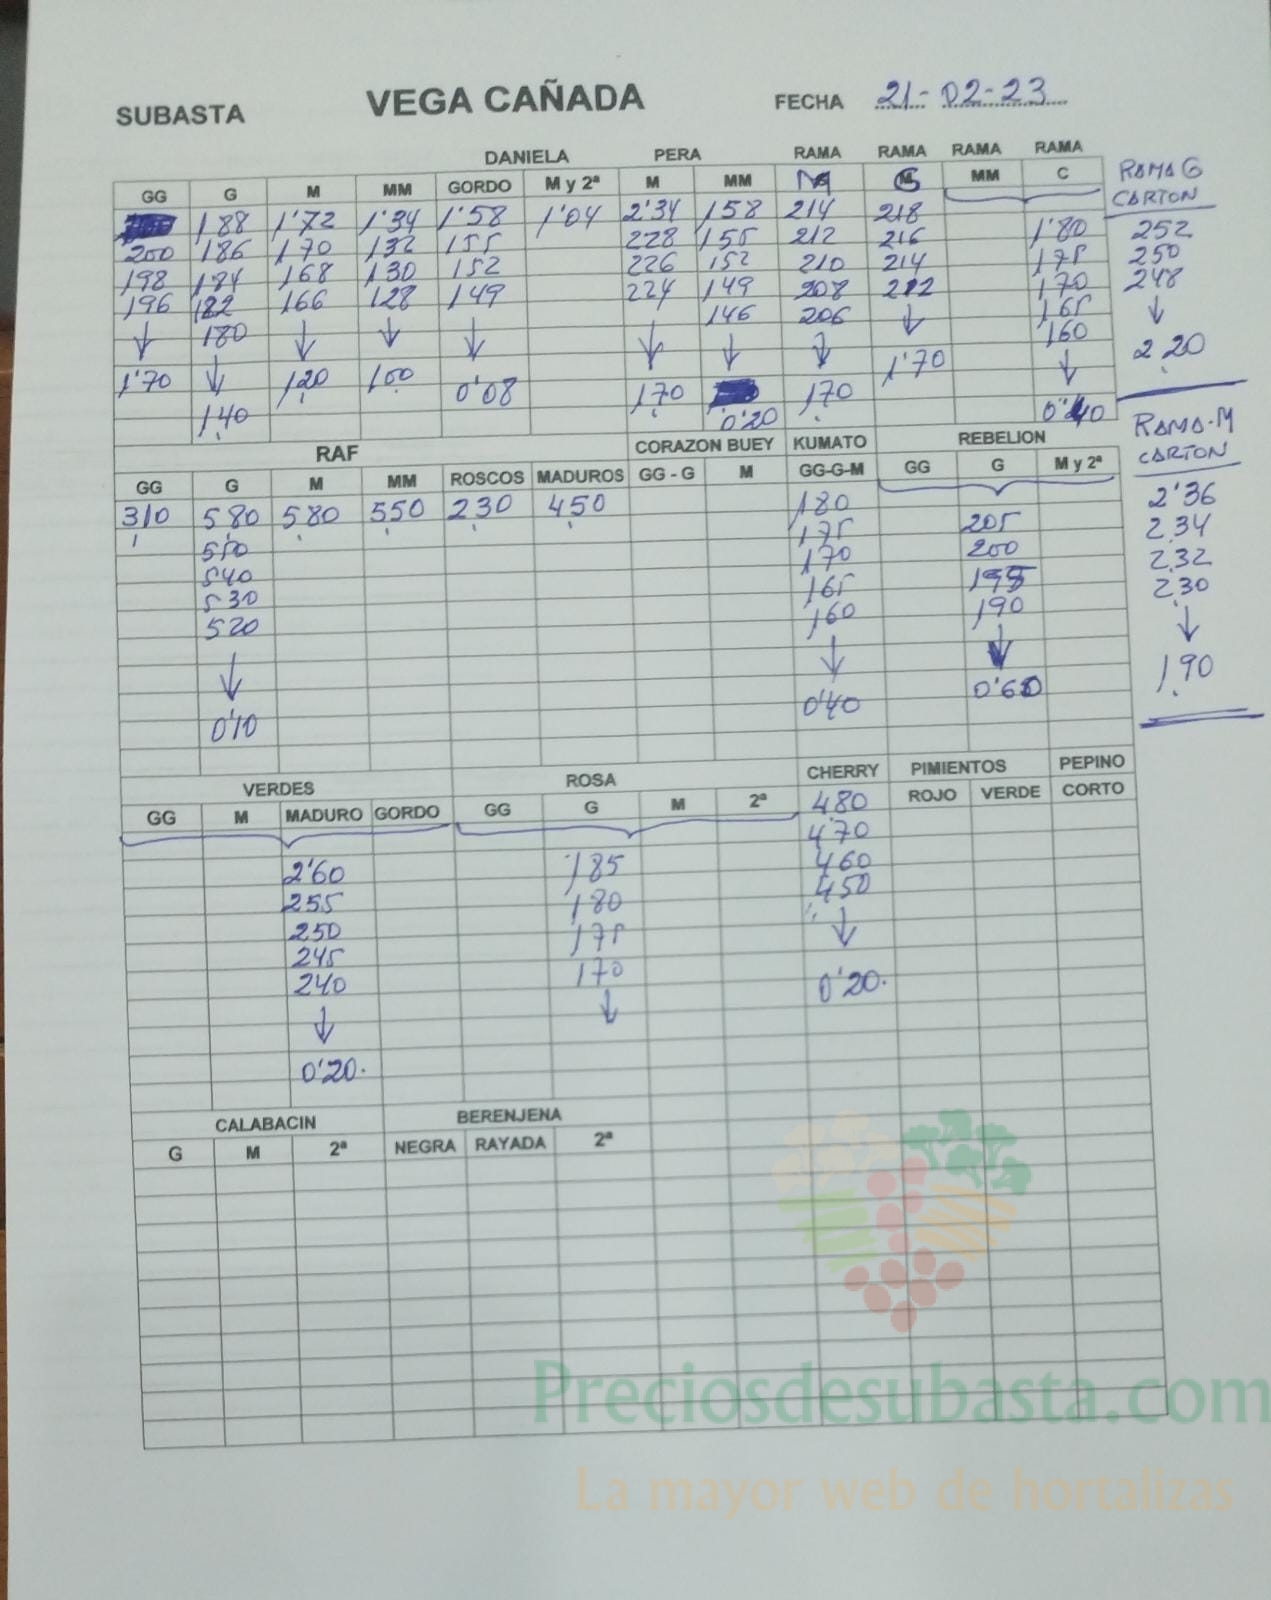 SUBASTA VEGA CAÑADA FECHA 21-02-23
DANIELA PERA RAMA RAMA RAMA RAMA
GG G M MM GORDO M y 2ª M MM M G MM C
RAMA G
CARTON
188 1'72 1'34 1'58 1'04 2'34 158 214 218 1'80 252
200 186 170 132 155 228 155 212 216 175 250
198 184 168 130 152 226 152 210 214 170 248
196 182 166 128 149 224 149 208 212 165 ↓
↓ 180 ↓ ↓ ↓ ↓ 146 206 ↓ 160 2.20
1'70 ↓ 1.20 1.00 0'08 1.70 ↓ ↓ 1'70 ↓
1.40 0'20 1.70 0'40
RAMA-M
CARTON
2'36
2.34
2.32
2.30
↓
1.90
RAF CORAZON BUEY KUMATO REBELION
GG G M MM ROSCOS MADUROS GG - G M GG-G-M GG G M y 2ª
310 580 580 550 230 450 180
175 205
540 170 200
530 165 195
520 160 190
↓ ↓ ↓
0'10 0'40 0'60
VERDES ROSA CHERRY PIMIENTOS PEPINO
GG M MADURO GORDO GG G M 2ª 480 ROJO VERDE CORTO
470
2'60 185 460
255 180 450
250 175 ↓
245 170
240 ↓ 0'20.
↓
0'20.
CALABACIN BERENJENA
G M 2ª NEGRA RAYADA 2ª
Preciosdesubasta.com
La mayor web de hortalizas